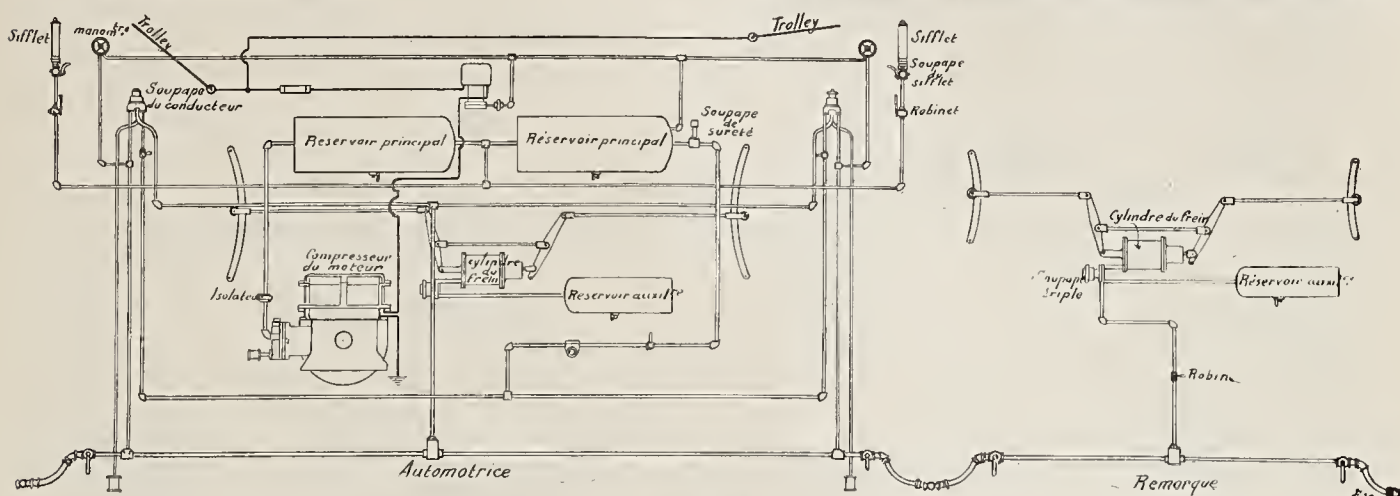 Sifflet
manomtre
Trolley
Trolley
Sifflet
Soupape
du
sifflet
Robinet
Soupape
du conducteur
Reservoir principal
Réservoir principal
Soupape
de
sureté
Compresseur
du moteur
Isolateu
Cylindre
du
frein
Réservoir auxilre
Automotrice
Cylindre du frein
triple
Réservoir auxilre
Robin
Remorque